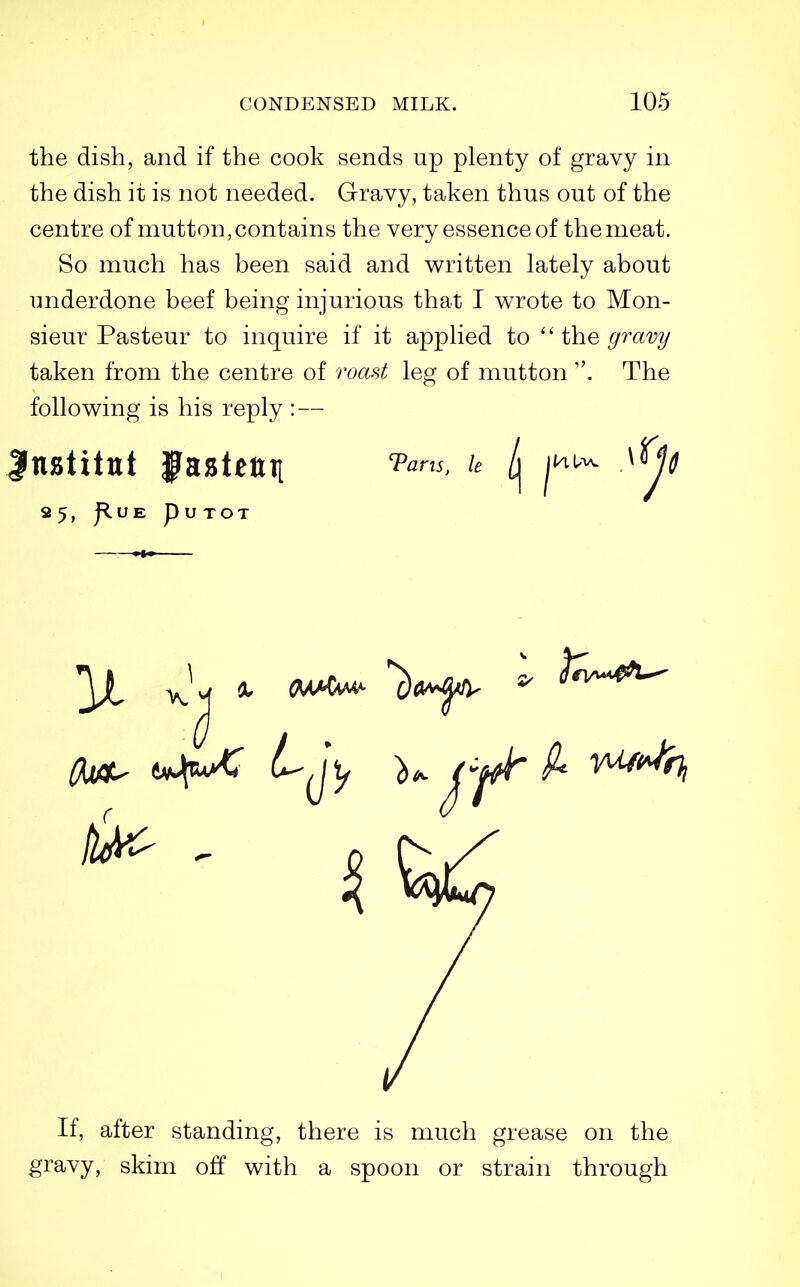 CONDENSED MILK. 105
the dish, and if the cook sends up plenty of gravy in
the dish it is not needed. Gravy, taken thus out of the
centre of mutton, contains the very essence of the meat.
So much has been said and written lately about
underdone beef being injurious that I wrote to Mon-
sieur Pasteur to inquire if it applied to “ the gravy
taken from the centre of roast leg of mutton ”. The
following is his reply :—
Institut Pasteur Paris, le 4 juin
25, Rue Dutot
Il n'y a aucun danger à
jus de gigot de mouton
L. Pasteur
If, after standing, there is much grease on the
gravy, skim off with a spoon or strain through